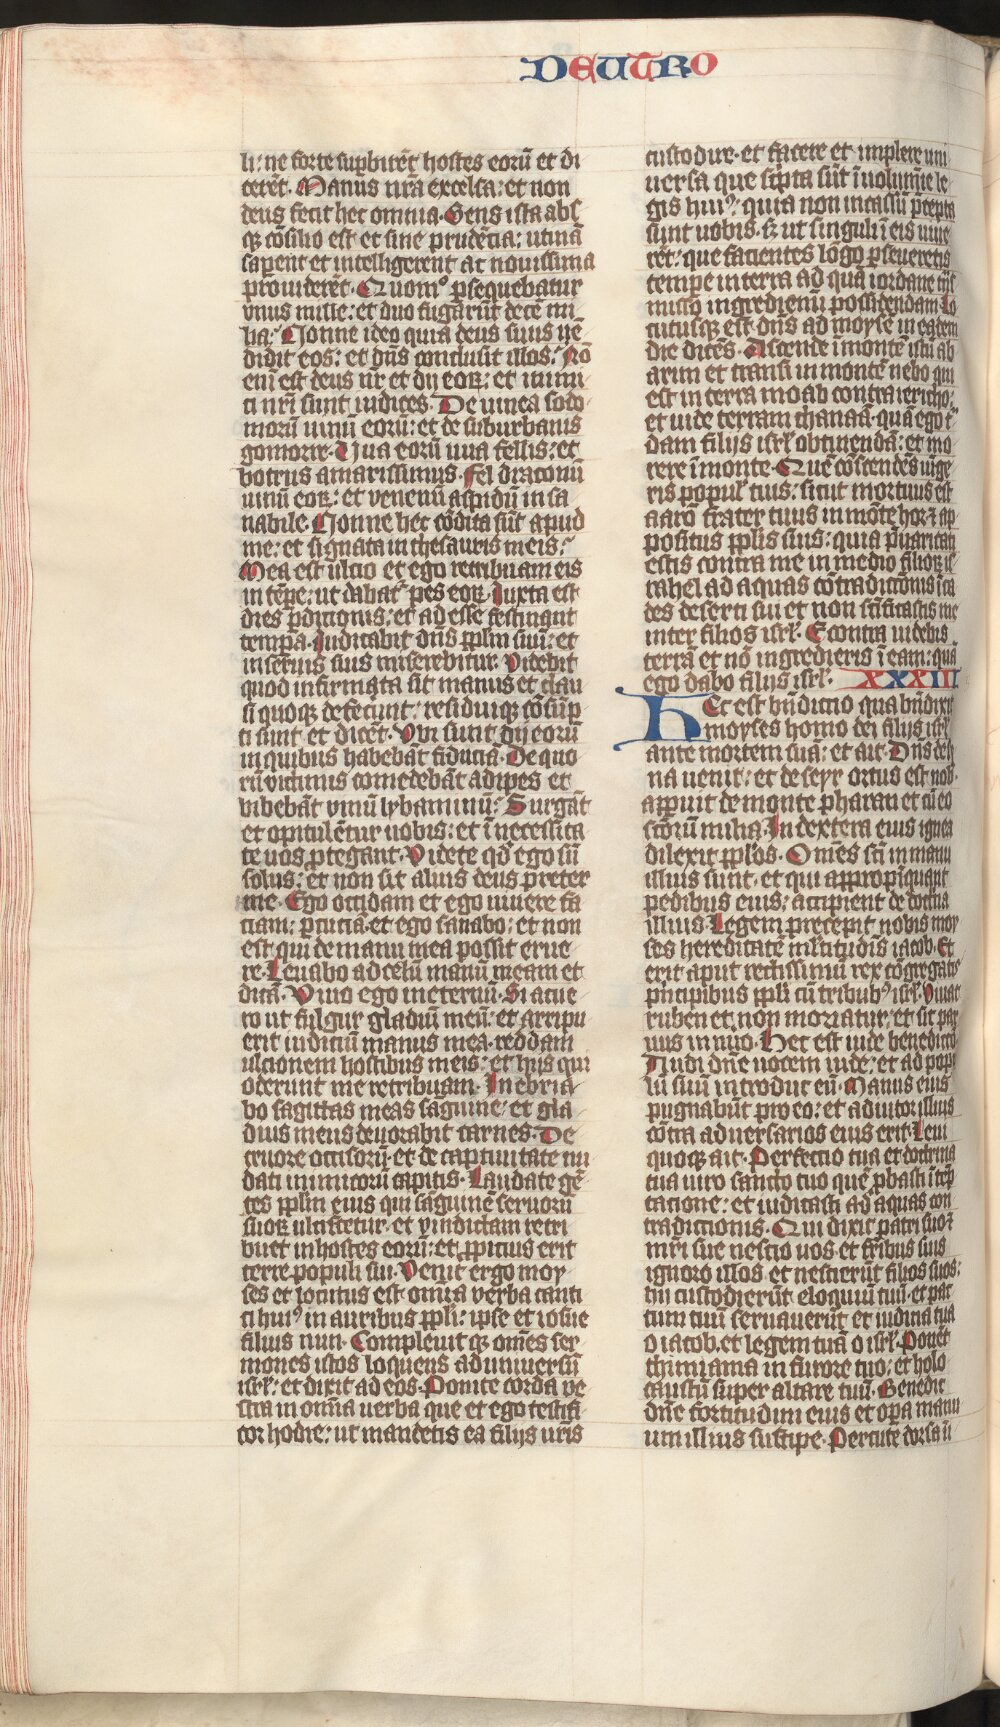 DEUTRO
li: ne forte supbirēt hostes eorū et di
cerēt. Manus nrā excelsa: et non
deus fecit hec omnia. Gens ista abs
qȝ cōsilio est et sine prudēcia: utinā
saperēt et intelligerent ac nouissima
prouiderēt. Quomº psequebatur
vnus mille: et duo fugarūt decē mi
lia: Nonne ideo quia deus suus vē
didit eos: et dn̄s conclusit illos: Nō
eni est deus nr̄ et dij eoꝝ: et inimi
ci nr̄i sunt iudices. De uinea sodo
morū uinū eorū: et de suburbanis
gomorre. Vua eorū uua fellis: et
botrus amarissimus. Fel draconū
uinū eoꝝ: et venenū aspidū insa
nabile. Nonne hec cōdita sūt apud
me: et signata in thesauris meis:
Mea est ulcio et ego retribuam eis
in tēpe: ut labat᷑ pes eoꝝ. Iuxta est
dies pdicionis: et adesse festinant
tempa. Iudicabit dn̄s pplm suū: et
in seruis suis miserebitur. Videbit
quod infirmata sit manus et clau
si quoqȝ defecerunt: residuiqȝ cōsūp
ti sunt et dicēt. Vbi sunt dij eorū
in quibus habebāt fiduciā. De quo
rū victimis comedebāt adipes et
bibebāt vinū lybaminū: Surgāt
et opitulētur uobis: et ī necessita
te uos ptegant. Videte qd̄ ego sū
solus: et non sit alius deus preter
me. Ego occidam et ego uiuere fa
ciam: pcuciā et ego sanabo: et non
est qui de manu mea possit erue
re. Leuabo ad celū manū meam et
dicā. Viuo ego in eternū. Si acue
ro ut fulgur gladiū meū: et arripu
erit iudiciū manus mea. reddam
ulcionem hostibus meis: et hijs qui
oderunt me retribuam. Inebria
bo sagittas meas sanguine: et gla
dius meus deuorabit carnes. De
cruore occisorū et de captiuitate nu
dati inimicorū capitis. Laudate gē
tes pplm eius qui saguinē seruorū
suoꝝ ulciscetur et vindictam retri
buet in hostes eorū: et ppicius erit
terre populi sui. Venit ergo moy
ses et locutus est omia verba canti
ci huiꝰ in auribus ppli: ipse et iosue
filius nun. Compleuit qȝ om̄es ser
mones istos loquens ad uniuersū
isrl: et dixit ad eos. Ponite corda ve
stra in omia uerba que et ego testifi
cor hodie: ut mandetis ea filijs uris
custodire et facere et implere uni
uersa que scpta sūt ī uolumīe le
gis huiꝰ: quia non incassū pcepta
sunt uobis. ut singuli ī eis uiue
rēt: que facientes lōgo pseueretis
tempe in terra ad quā iordane
misso ingredienū possidendam. Lo
cutusqȝ est dn̄s ad moysē in eadem
die dicēs. Ascende ī montē istū ab
arim et transi in montē nebo qui
est in terra moab contra iericho:
et uide terram chanaā quā ego t
dam filijs isrl' obtinendā: et mo
rere ī monte. Quē cōscendēs iūge
ris popul' tuis: sicut mortuus est
aarō frater tuus in mōte hor ⁊ ap
positus pplis suis: quia puaricati
estis contra me in medio filioꝝ is
rahel ad aquas cōtradictionis ī ca
des deserti sin et non scīficastis me
inter filios isrl'. Econtra uidebis
terrā et nō ingredieris ī eam: quā
ego dabo filijs isrl'. XXXIII
Hec est bn̄dictio qua bn̄dixit
moyses homo dei filijs isrl'
ante mortem suā: et ait. Dn̄s de sy
na uenit: et de seyr ortus est nob.
Apparuit de monte pharan et cū eo
scōrū milia. In dextera eius ignea
dilexit pplos. Om̄es scī in manu
illius sunt. et qui appropīquant
pedibus eius: accipient de doctna
illius. Legem precepit nobis moy
ses hereditatē mltitudīs iacob. Et
erit aput rectissimū rex cōgregatis
pncipibus ppli cū tribubꝰ isrl'. Viuat
ruben et non moriatur: et sit par
uus in nūo. Hec est iude benedictō
Audi dn̄e uocem iude: et ad popu
lū suū introduc eū. Manus eius
pugnabūt pro eo: et adiutor illius
cōtra aduersarios eius erit. Leui
quoqȝ ait. Perfectio tua et doctrina
tua uiro sancto tuo quē pbasti ī tēp
tacione: et iudicasti ad aquas con
tradictionis. Qui dixit patri suo ⁊
mr̄i sue nescio uos et fr̄ibus suis
ignoro illos et nescierūt filios suos:
hii custodierūt eloquiū tuū et pac
tum tuū seruauerūt et iudicia tua
o iacob. et legem tuā o isrl'. Ponēt
thimiama in furore tuo: et holo
caustū super altare tuū. Benedic
dn̄e fortitudini eius et opa manu
um illius suscipe. Percute dorsa ii